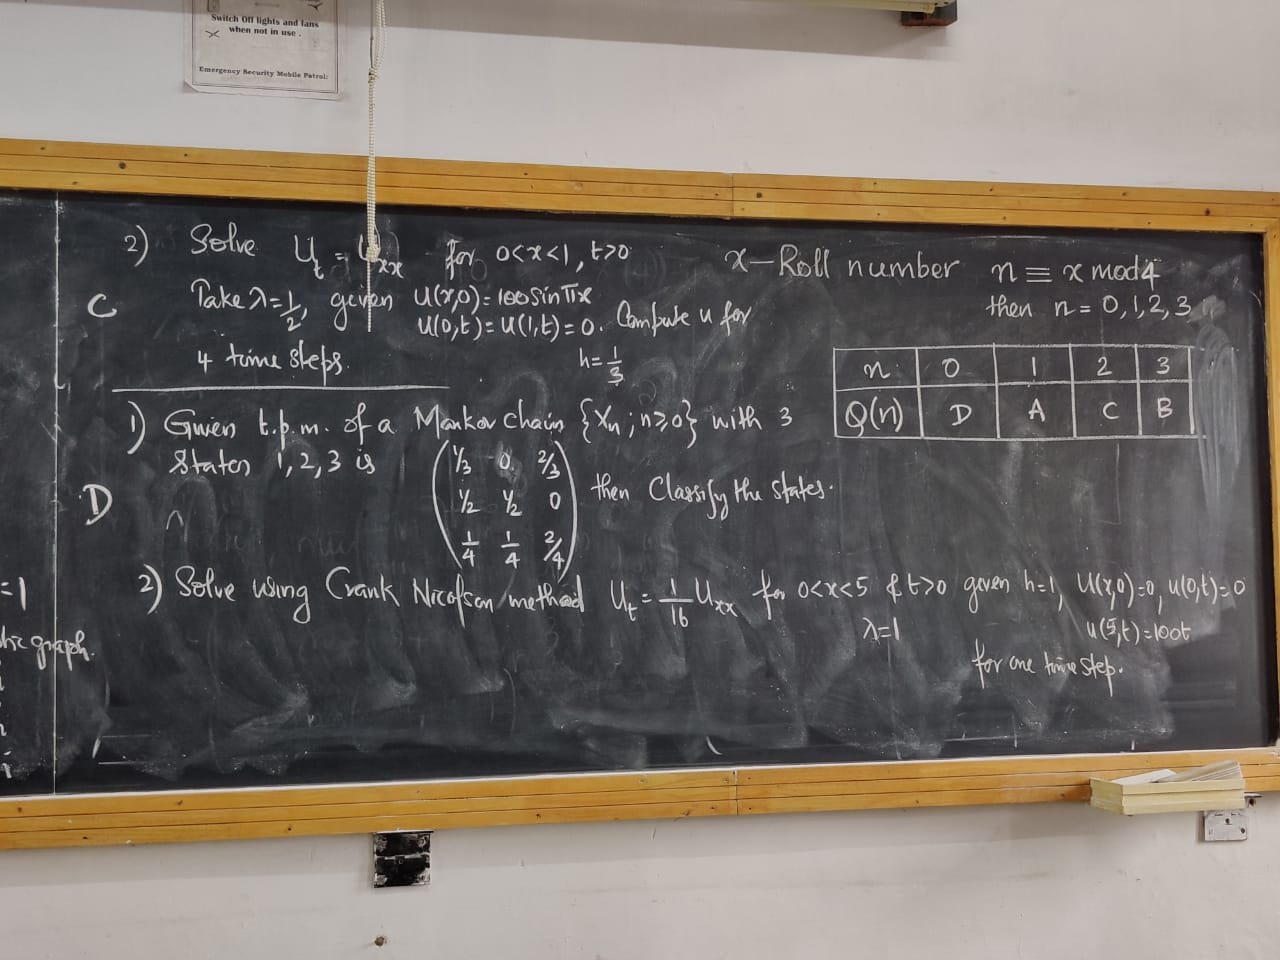 Switch Off lights and fans
when not in use .
Emergency Security Mobile Patrol:
2) Solve U_t = U_xx for 0<x<1, t>0
C Take λ=1/2, given u(x,0)=100 sin πx
u(0,t)=u(1,t)=0. Compute u for
4 time steps. h=1/3
x-Roll number n ≡ x mod4
then n = 0,1,2,3
n 0 1 2 3
Q(n) D A C B
1) Given t.p.m. of a Markov chain {X_n ; n≥0} with 3
States 1,2,3 is
1/3 0 2/3
1/2 1/2 0
1/4 1/4 2/4
then Classify the states.
D
2) Solve using Crank Nicolson method U_t = 1/16 U_xx for 0<x<5 & t>0 given h=1, u(x,0)=0, u(0,t)=0
λ=1 u(5,t)=100t
for one time step.
=1
graph.